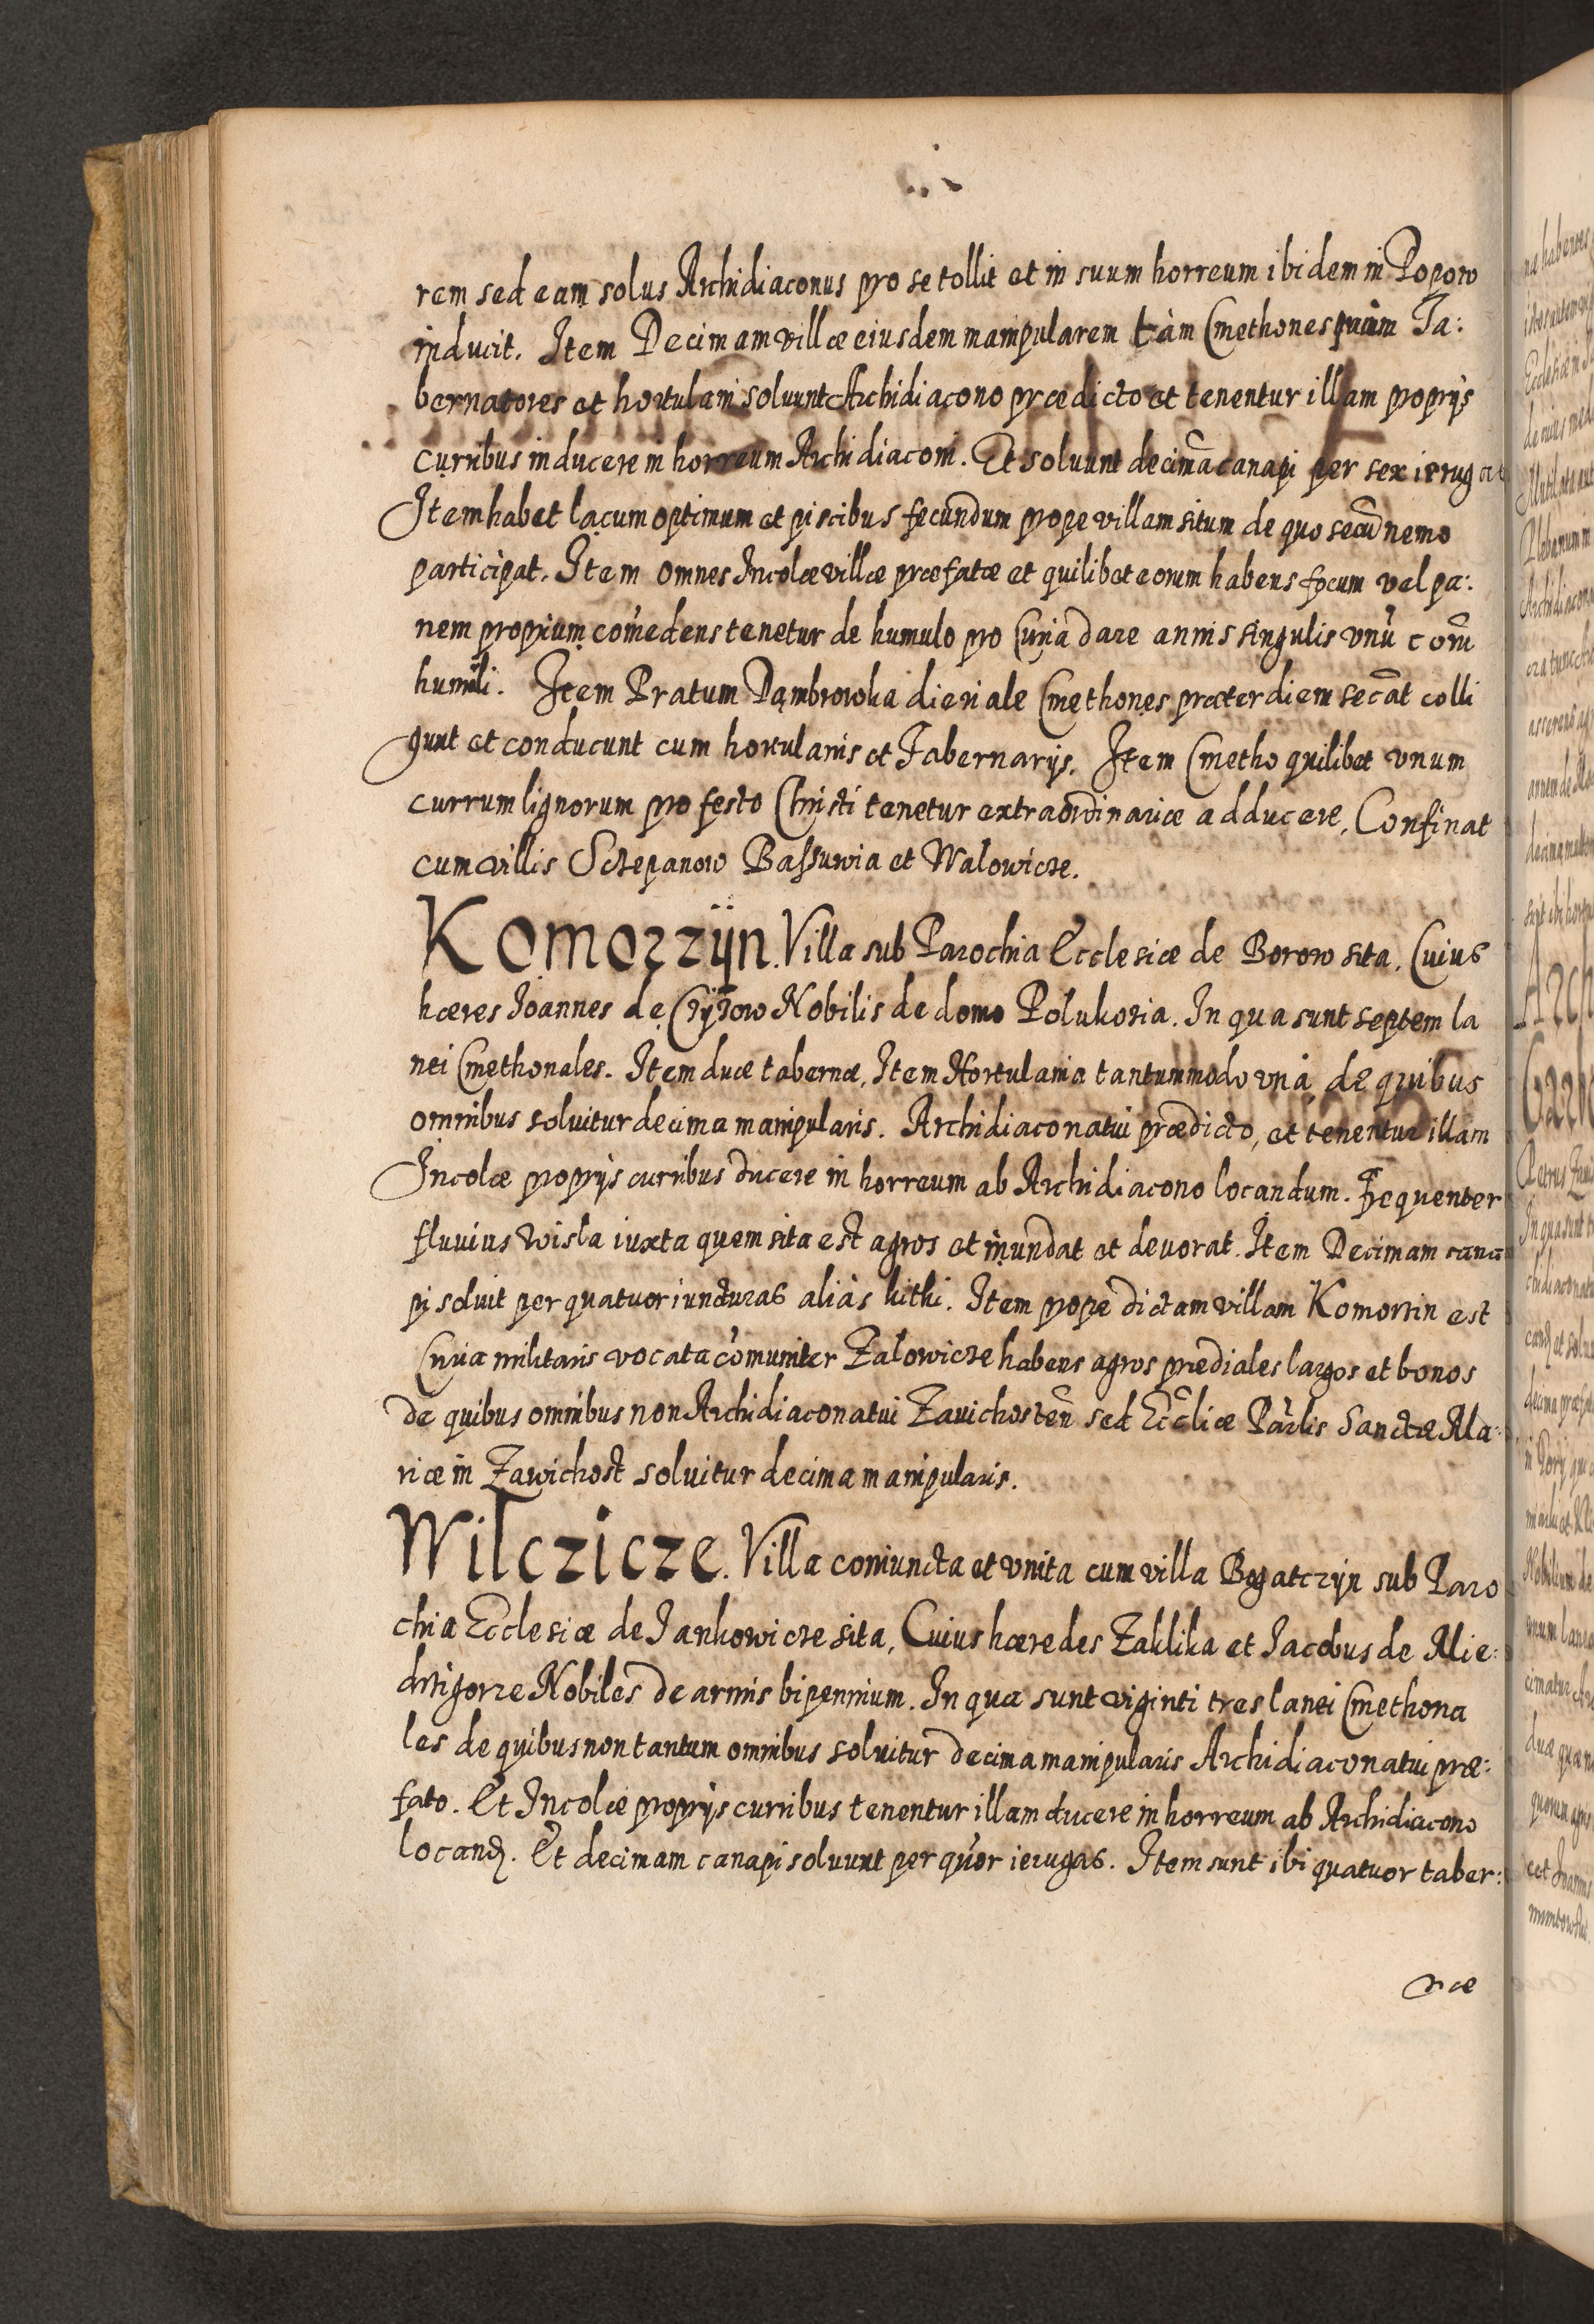 rem sed eam solus Archidiaconus pro se tollit et in suum horreum ibidem in Popow
inducit. Item Decimam villæ eiusdem manipularem tàm Cmethones quàm Ta:
bernatores et hortulani soluunt Archidiacono prædicto et tenentur illam proprijs
curribus inducere in horreum Archidiaconi. Et soluunt decimã canapi per sex ierugas
Item habet lacum optimum et piscibus fecundum prope villam situm de quo secũ nemo
participat. Item omnes Incolæ villæ præfatæ et quilibet eorum habens focum vel pa:
nem proprium com̃edens tenetur de humulo pro Curia dare annis singulis vnũ corũ
humuli. Item Pratum Dąmbrowka dieriale Cmethones præter diem secãt colli
gunt et conducunt cum hortulanis et Tabernarijs. Item Cmetho quilibet vnum
currum lignorum pro festo Christi tenetur extraordinariæ adducere. Confinat
cum villis Sczepanow Bassuwia et Walowicze.
Komorzÿn. Villa sub Parochia Ecclesiæ de Borow sita. Cuius
hæres Ioannes de Czÿzow Nobilis de domo Polukozia. In qua sunt septem la
nei Cmethonales. Item duæ tabernæ, Item Hortulania tantummodo vna, de quibus
omnibus soluitur decima manipularis. Archidiaconatui prædicto, et tenentur illam
Incolæ proprijs curribus ducere in horreum ab Archidiacono locandum. Frequenter
fluuius Wisla iuxta quem sita est agros et inundat et deuorat. Item Decimam cana
pi soluit per quatuor iuncturas aliàs kithi. Item prope dictam villam Komorrin est
Curia militaris vocata com̃uniter Zalowicze habens agros prædiales largos et bonos
de quibus omnibus non Archidiaconatui Zauichosteñ sed Ecc̃liæ Par̃lis Sanctæ Ma:
riæ in Zawichost soluitur decima manipularis.
Wilczicze. Villa coniuncta et vnita cum villa Bogatczÿn sub Paro
chia Ecclesiæ de Iankowicze sita, Cuius hæredes Zaklika et Iacobus de Mie:
drzigorze Nobiles de armis bipennium. In qua sunt viginti tres lanei Cmethona
les de quibus non tantum omnibus soluitur decima manipularis Archidiaconatui præ:
fato. Et Incolæ proprijs curribus tenentur illam ducere in horreum ab Archidiacono
locanḍ. Et decimam canapi soluunt per qũor ierugas. Item sunt ibi quatuor taber:
næ